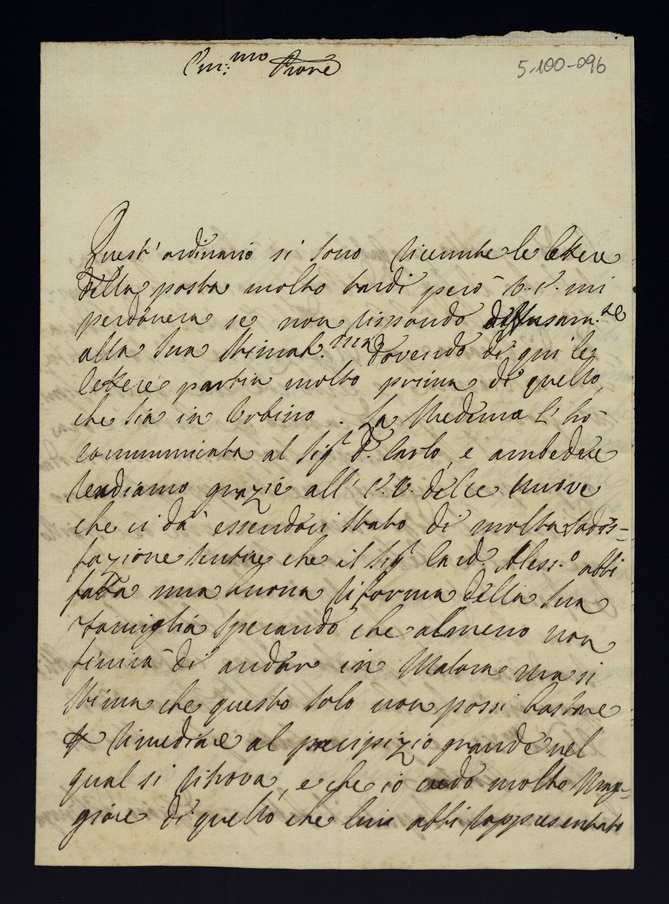 5-100-096
Em:mo Prone
Quest' ordinario si sono ricevute le lettere
della posta molto tardi però V. E. mi
perdonerà se non rispondo diffusam:te
alla sua stimat.ma dovendo di qui le
lettere partir molto prima di quello,
che sia in Urbino. La Medema l'hò
communicata al Sigr D. Carlo, e ambedue
rendiamo grazie all' E. V. delle nuove
che ci dà essendoci stato di molta sodis-
fazione sentire che il Sigr Card. Aless.o abbi
fatta una buona riforma della sua
famiglia sperando che almeno non
finirà di andar in Malora ma si
stima che questo solo non possi bastare
rimediare al precipizio grande nel
qual si ritrova, e che io credo molto Mag-
giore di quello che lui abbi rappresentato